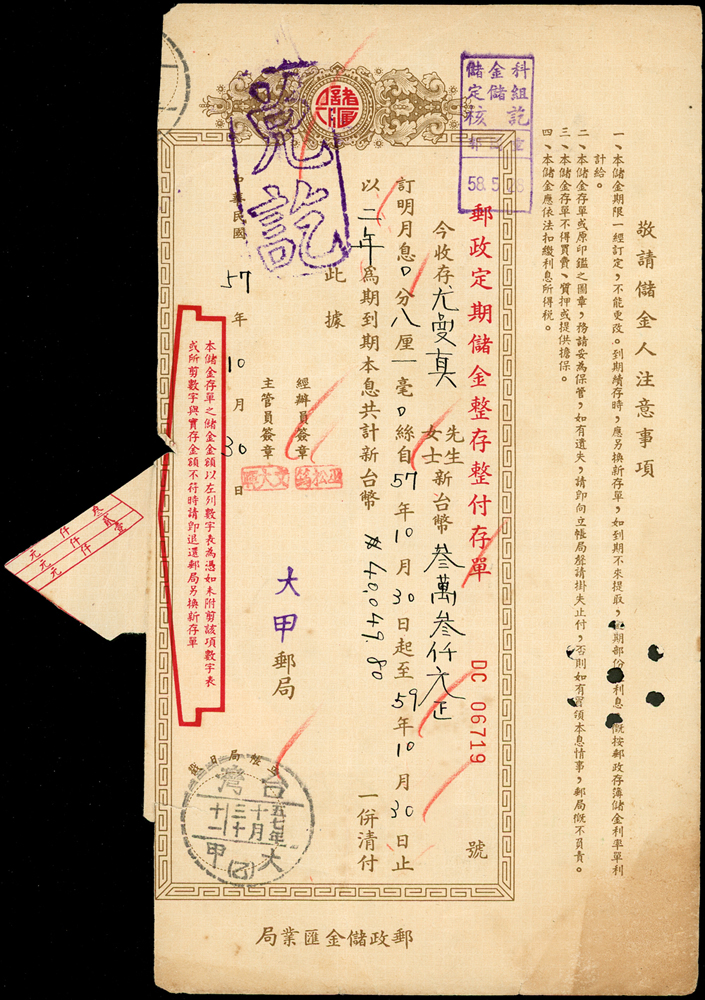 敬請儲金人注意事項
一、本儲金期限一經訂定，不能更改。到期續存時，應另換新存單，如到期不來提取，期部份利息概按郵政存簿儲金利率單利
計給。
二、本儲金存單或原印鑑之圖章，務請妥為保管，如有遺失，請即向立帳局辦請掛失止付，否則如有冒領本息情事，郵局概不負責。
三、本儲金存單不得買賣、質押或提供擔保。
四、本儲金應依法扣繳利息所得稅。
儲金科
定儲組
核訖
58.5.
郵政定期儲金整存整付存單
DC 06719 號
今收存尤曼真 先生 女士 新台幣 叁萬叁仟元正
訂明月息0分八厘一毫0絲自57年10月30日起至59年10月30日止
以二年為期到期本息共計新台幣 #40049 80 一併清付
此據
經辦員簽章
主管員簽章
大甲郵局
中華民國57年10月30日
兌訖
儲匯
本儲金存單之儲金金額以左列數字表為憑如未附剪該項數字表
或所剪數字與實存金額不符時請即退還郵局另換新存單
立帳局日戳
台灣
五七年
十月
三十
十一
大甲
(乙)
叁 貳 壹
仟 仟
元 元 元
郵政儲金匯業局